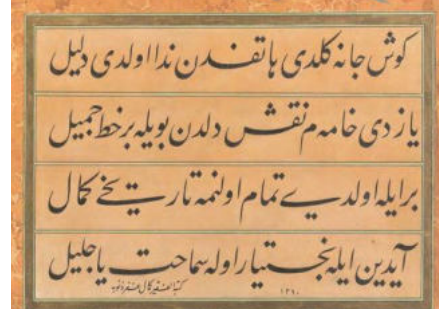 كوش جانه كلدى هاتفدن ندا اولدى دليل
يازدى خامه م نقش دلدن بويله بر خط جميل
بر ايله اولدى تمام اولنمه تاريخ كمال
آيدين ايله بختيار اوله سماحت يا جليل
١٢٩٠